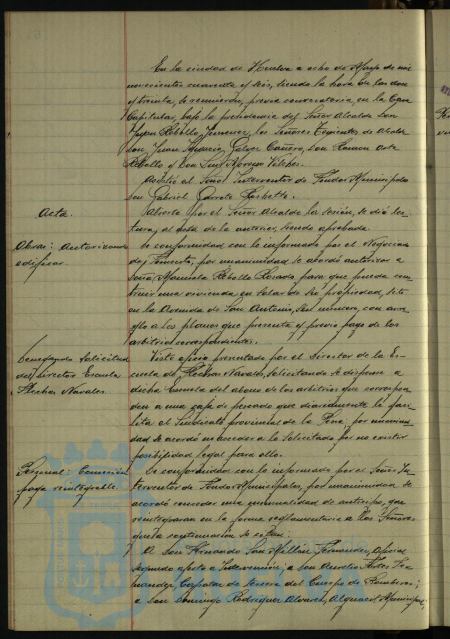 En la ciudad de Huelva a ocho de Mayo de mil
novecientos cuarenta y seis, siendo la hora de las doce
y treinta, se reunieron, previa convocatoria, en la Casa
Capitular, bajo la presidencia del Señor Alcalde don
Rebollo Jimenez, los Señores Tenientes de Alcalde
don Juan Ignacio Galvez Cañero, don Ramon
Rebollo y Don Luis Moreno Vilches.
Asistió el Señor Interventor de Fondos Municipales
don Gabriel Garrote
Acta.
Abierta por el Señor Alcalde la sesión, se dió lec-
tura al acta de la anterior, siendo aprobada.
Obras: Autorizando
edificar
De conformidad con lo informado por el Negociado
de Fomento, por unanimidad se acordó autorizar a
doña Manuela Rebollo Rosado para que pueda cons-
truir una vivienda, en solar de su propiedad, sito
en la Avenida de San Antonio, sin número, con arre-
glo a los planos que presenta y previo pago de los
arbitrios correspondientes.
Denegando solicitud
del Director Escuela
Flechas Navales
Visto oficio presentado por el Director de la Es-
cuela de Flechas Navales, solicitando se dispense a
dicha Escuela del abono de los arbitrios que correspon-
den a una caja de pescado que diariamente le faci-
lita el Sindicato provincial de la Pesca, por unanimi-
dad se acordó no acceder a lo solicitado por no existir
posibilidad legal para ello.
Personal: Concesión
paga reintegrable
De conformidad con lo informado por el Señor In-
terventor de Fondos Municipales, por unanimidad se
acordó conceder una mensualidad de anticipo, que
reintegraran en la forma reglamentaria a los Señores
que a continuación se citan:
A don Fernando San Millán Fernandez, Oficial
segundo afecto a Intervención; a don Aurelio Flores Fer-
nandez Capataz de tercera del Cuerpo de Bomberos;
a don Domingo Rodriguez Alvarez, Alguacil Municipal,